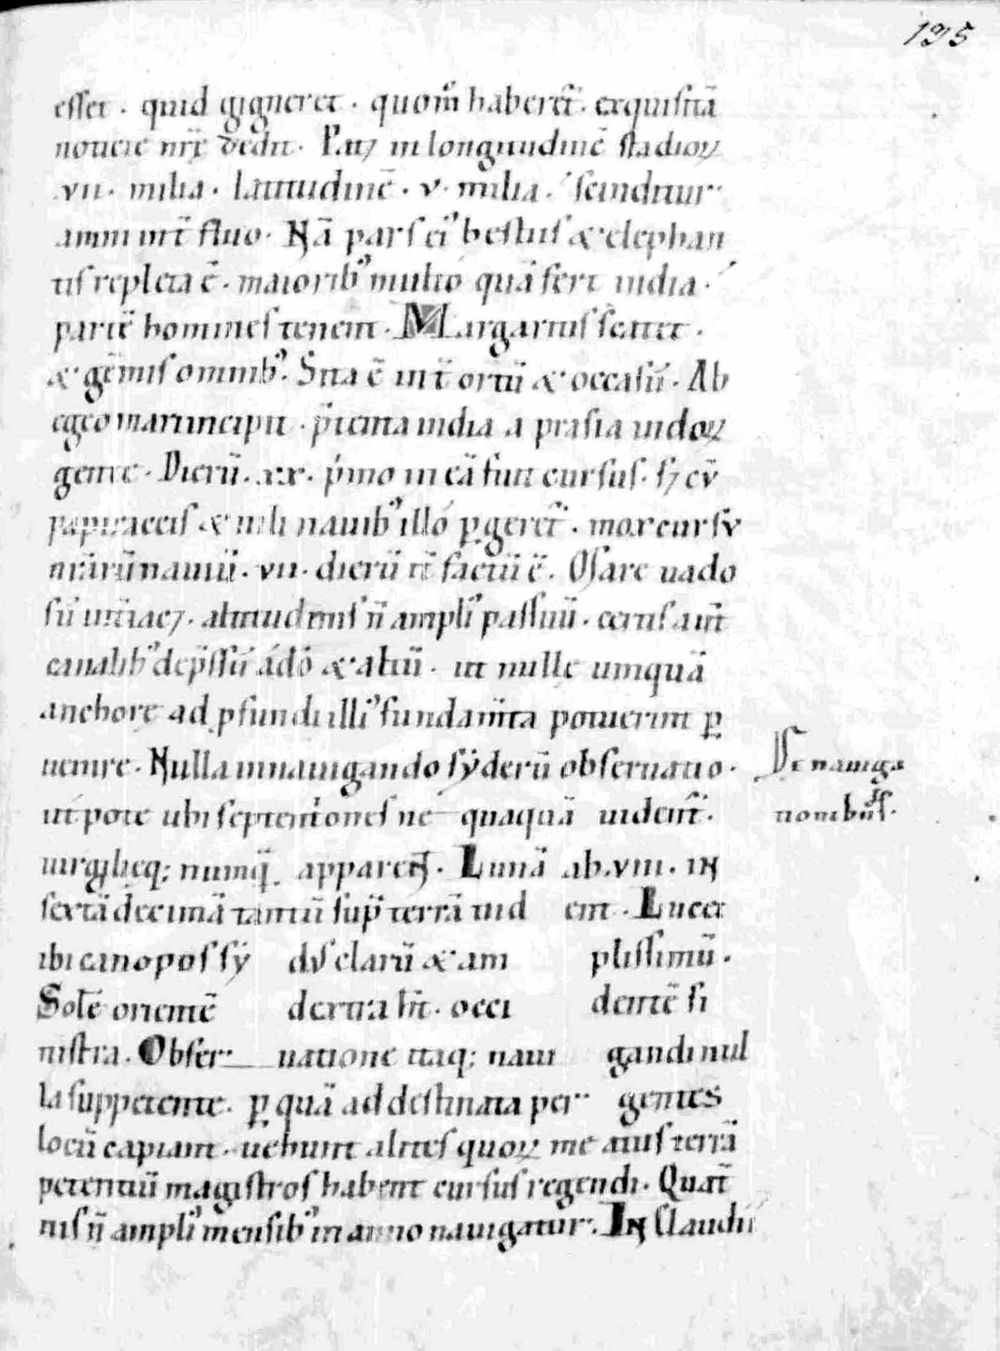 195
esset . quid gigneret . quom̄ haberet᷑ . exquisitā
noticie nr̄ę dedit . Pat⁊ in longitudinē stadioꝝ
.vii . milia . latitudinē . v . milia . scinditur
amni int̄ fluo . Nā pars ei᾽ bestiis & elephan
tis repleta ē . maiorib᾽ multo quā fert india .
partē homines tenent . Margaritis scatet .
& gēmis omnib᾽ . Sita ē int̄ ortū & occasū . Ab
egeo mari incipit . p̄tenta india a prasia indoꝝ
gente . Dierū . xx . p̍mo in eā fuit cursus . s⁊ cū
papiraceis & nili nauib᾽ illo ꝑgeret᷑ . mox cursu
nr̄arū nauiū . vii . dierū it̄ factū ē . Osare uado
sū int̄iac⁊ . altitudinis n̄ ampli᾽ passuū . certis aut̄
canalib᾽ dep̄ssū adō & altū . ut nullę umquā
anchorę ad ꝓfundi illi᾽ fundam̄ta potuerint ꝑ
uenire . Nulla in nauigando sẏderū obseruatio .
ut pote ubi septent̍ones ne quaquā uident᷑ .
uirgilięq; numq̄ apparent . Lunā ab . viii . in
sextā decimā tantū sup̄ terrā uid ent . Lucet
ibi canopos sẏ dus clarū & am plissimū .
Solē orientē dextra hn̄t . occi dentē si
nistra . Obser uatione itaq; naui gandi nul
la suppetente . ꝑ quā ad destinata per gentes
locū capiant . uehunt alites quoꝝ me atus terrā
petentiū magistros habent cursus regendi . Quat̄
nis n̄ ampli᾽ mensib᾽ in anno nauigatur . In Claudii
De nauiga
tionibus .